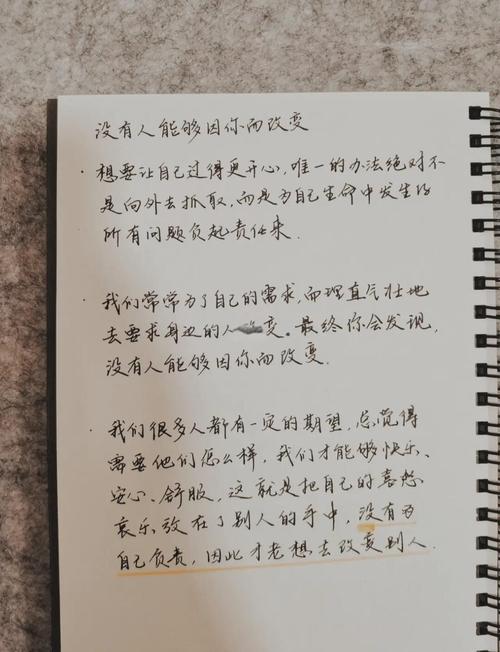 没有人能够因你而改变
· 想要让自己过得更开心，唯一的办法绝对不
是向外去抓取，而是为自己生命中发生的
所有问题负起责任来.
· 我们常常为了自己的需求，而理直气壮地
去要求身边的人变。最终你会发现，
没有人能够因你而改变.
· 我们很多人都有一定的期望，总觉得
需要他们怎么样，我们才能够快乐、
安心、舒服，这就是把自己的喜怒
哀乐放在了别人的手中，没有为
自己负责，因此才老想去改变别人.